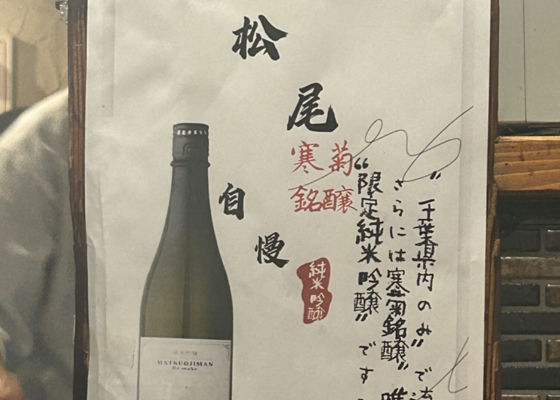 松尾
自慢
寒菊
銘醸
純米吟醸
MATSUOJIMAN
"千葉県内のみ"で
さらには寒菊銘醸"唯
"限定純米吟醸"です